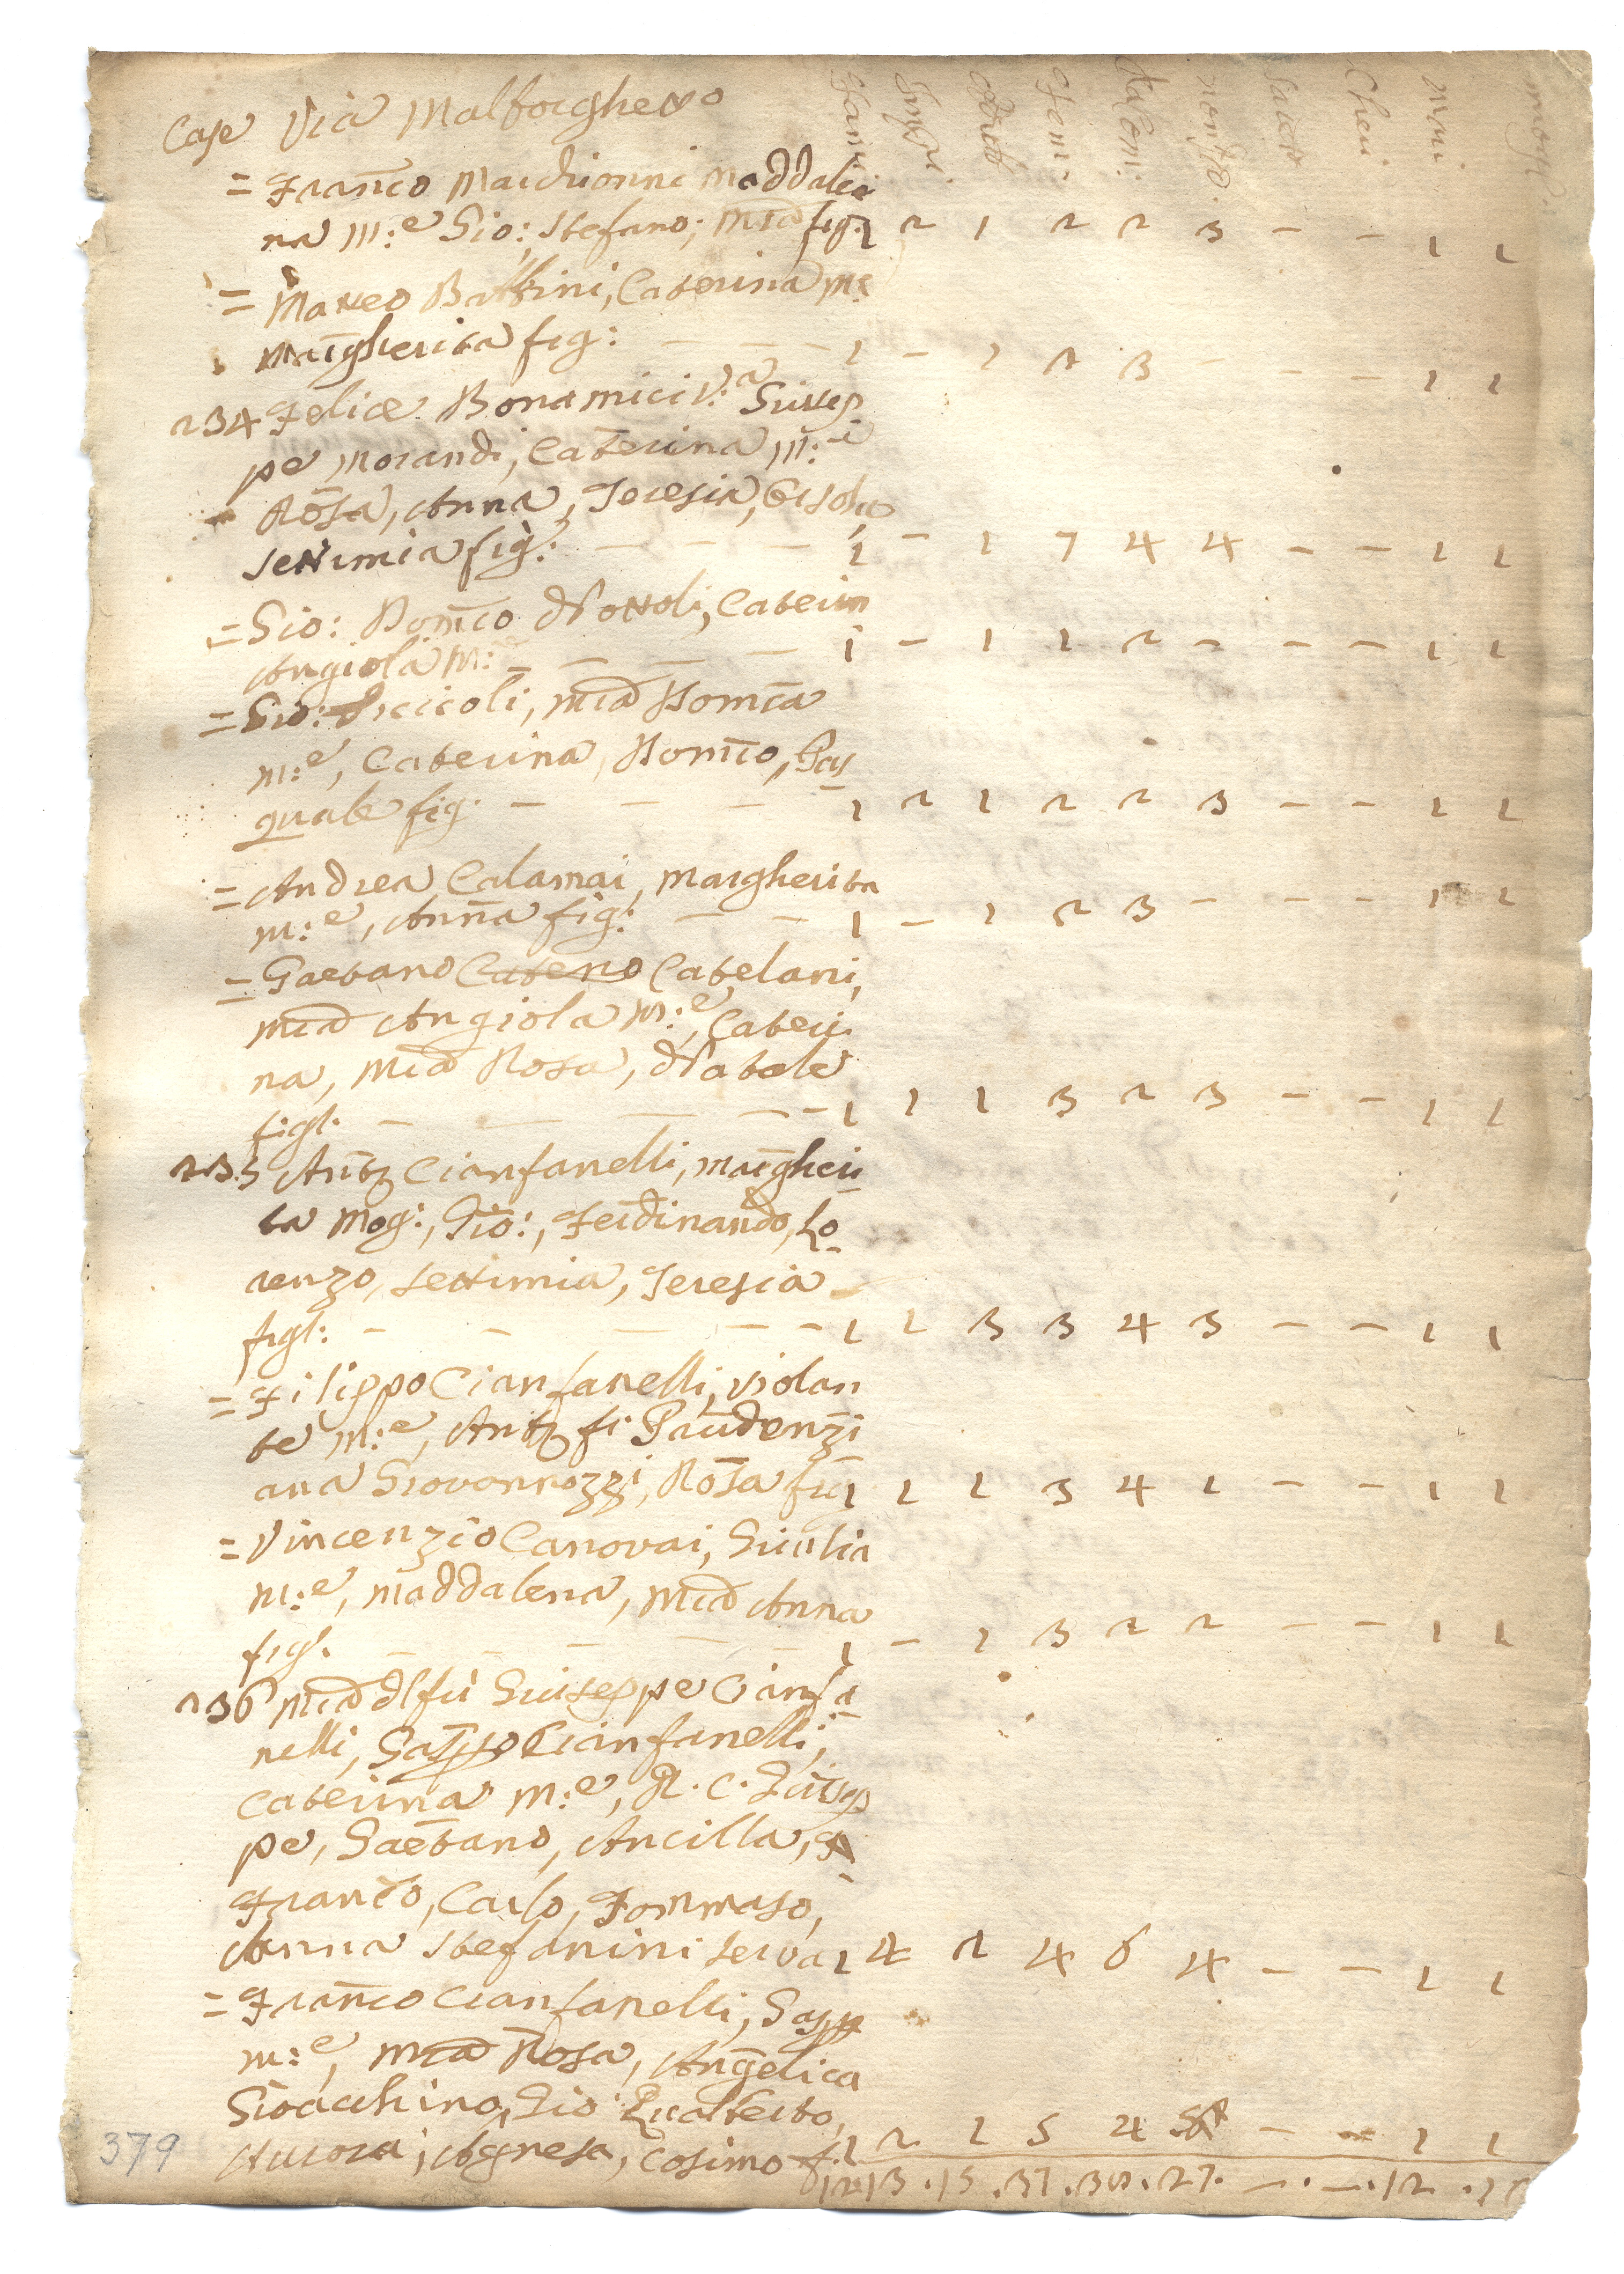 Case Via Malborghetto
= Franco Marchionni Maddale
na m:e Gio: Stefano; Mia fig: 1 2 1 2 2 3 – – 1 1
= Matteo Battini, Caterina m:e
Margherita fig: – – – 1 – 1 2 3 – – – 1 1
234 Felice Bonamici V:a Giusep
pe Morandi, Caterina m:e
Rosa, Anna, Teresia,
Settimia fig: – – – 1 – 1 7 4 4 – – 1 1
= Gio: Domco Nottoli, Caterin
Angiola m:e – – – – 1 – 1 1 2 – – – 1 1
= Gio: Ficcicoli, Mia Domca
m:e, Caterina, Domco, Pas
quale fig. – – – – 1 2 1 2 2 3 – – 1 1
= Andrea Calamai, Margherita
m:e, Anna fig: – – 1 – 1 2 3 – – – 1 1
= Gaetano Cateno Catelani,
Mia Angiola m:e, Cateri
na, Mia Rosa, Natale
figl. – – – – – 1 1 1 3 2 3 – – 1 1
235 Anto Cianfanelli, Margheri
ta mog:, Gio:, Ferdinando, Lo
renzo, Settimia, Teresia
figl: – – – – – 1 1 3 3 4 3 – – 1 1
= Filippo Cianfanelli, Violan
te m:e, Anto fi Prudenzi
ana Giovannozzi, Rosa fig 1 1 1 3 4 1 – – 1 1
= Vincenzio Canovai, Giulia
m:e, Maddalena, Mia Anna
figl. – – – – – 1 – 1 3 2 2 – – 1 1
236 Mia dl fù Giuseppe Cianfa
nelli, Cianfanelli,
Caterina m:e, R. C. Giusep
pe, Gaetano, Ancilla,
Franco, Carlo, Tommaso,
Anna Stefanini serva 1 4 2 4 6 4 – – 1 1
= Franco Cianfanelli,
m:e, Mia Rosa, Angelica
Gioacchino, Gio: Gualberto,
Aurora, Agnesa, Cosimo f. 1 2 1 5 4 – – 1 1
12 13 . 15 . 37 . 38 . 27. – . – . 12 .
379